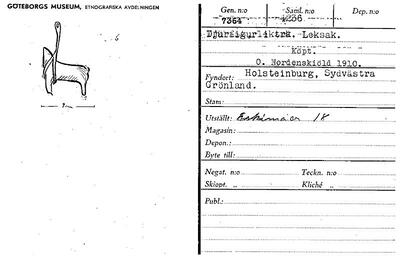 GÖTEBORGS MUSEUM, ETNOGRAFISKA AVDELNINGEN
Gen. n:o Saml. n:o Dep. n:o
7364 4236
Djurfigur i trä. Leksak.
Köpt.
O. Nordenskiöld 1910.
Fyndort: Holsteinburg, Sydvästra
Grönland.
Stam:
Utställt: Eskimåer 18
Magasin:
Depon.:
Byte till:
Negat. n:o Teckn. n:o
Skiopt. „ Kliché „
Publ.: